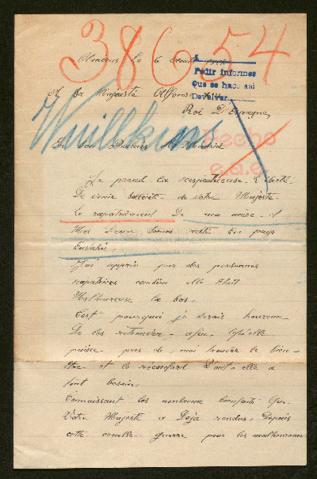 38654
A
Pedir informes
Que se haga asi
Devolver
Le 6
A Sa Majesté Alfonse XIII
Roi D'Espagne
Willkins
Madrid
Je prend la respectueuse liberté
De venir solliciter de votre Majesté
Le rapatriement De ma mère et
Mes Deux Sœurs resté en pays
Envahis
J'ai appris par des personnes
rapatriées combien elle était
Malheureuse la bas.
C'est pourquoi je serais heureux
De les retrouver afin qu'elle
puisse près de moi trouver le bien
être et le réconfort Dont elle a
tant besoin.
Connaissant les nombreux bienfaits que
Votre Majesté a Déjà rendus Depuis
cette cruelle guerre pour les malheureux